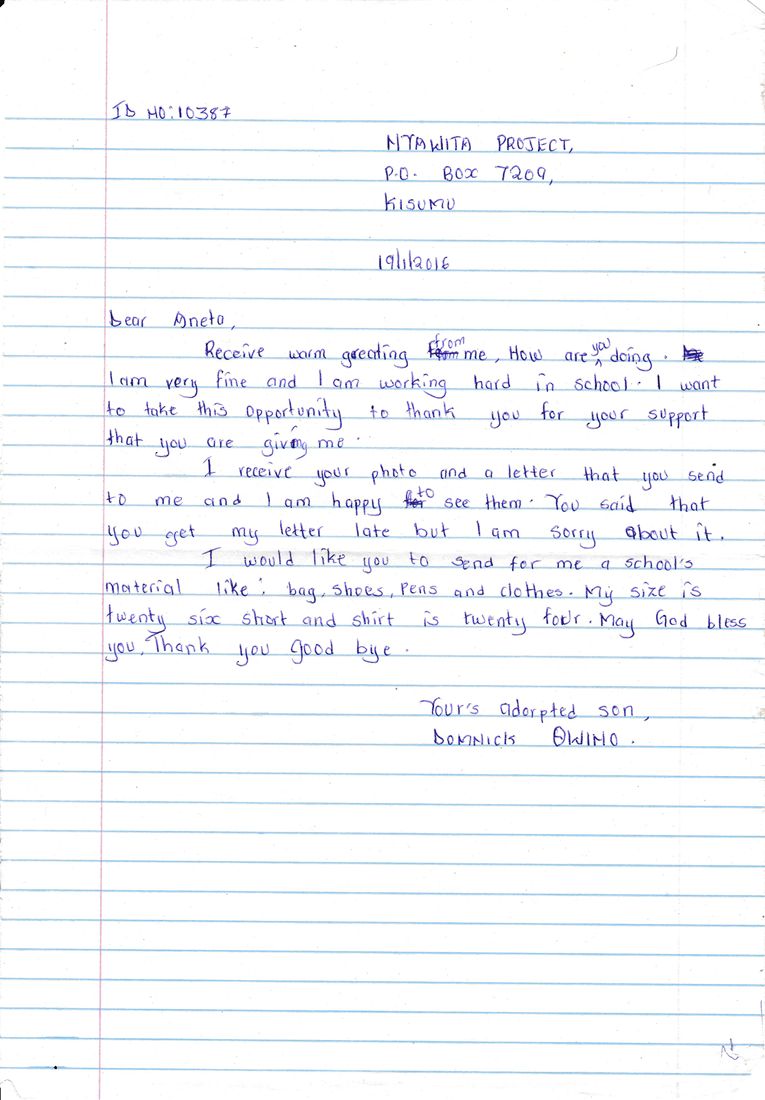 ID NO: 10387
NYAWITA PROJECT,
P.O. BOX 7209,
KISUMU
19/1/2016
Dear Aneta,
Receive warm greating from me, How are you doing.
I am very fine and I am working hard in school. I want
to take this opportunity to thank you for your support
that you are giving me.
I receive your photo and a letter that you send
to me and I am happy to see them. You said that
you get my letter late but I am sorry about it.
I would like you to send for me a school's
material like: bag, shoes, pens and clothes. My size is
twenty six short and shirt is twenty four. May God bless
you, Thank you Good bye.
Your's adorpted son,
DOMNICK OWINO.